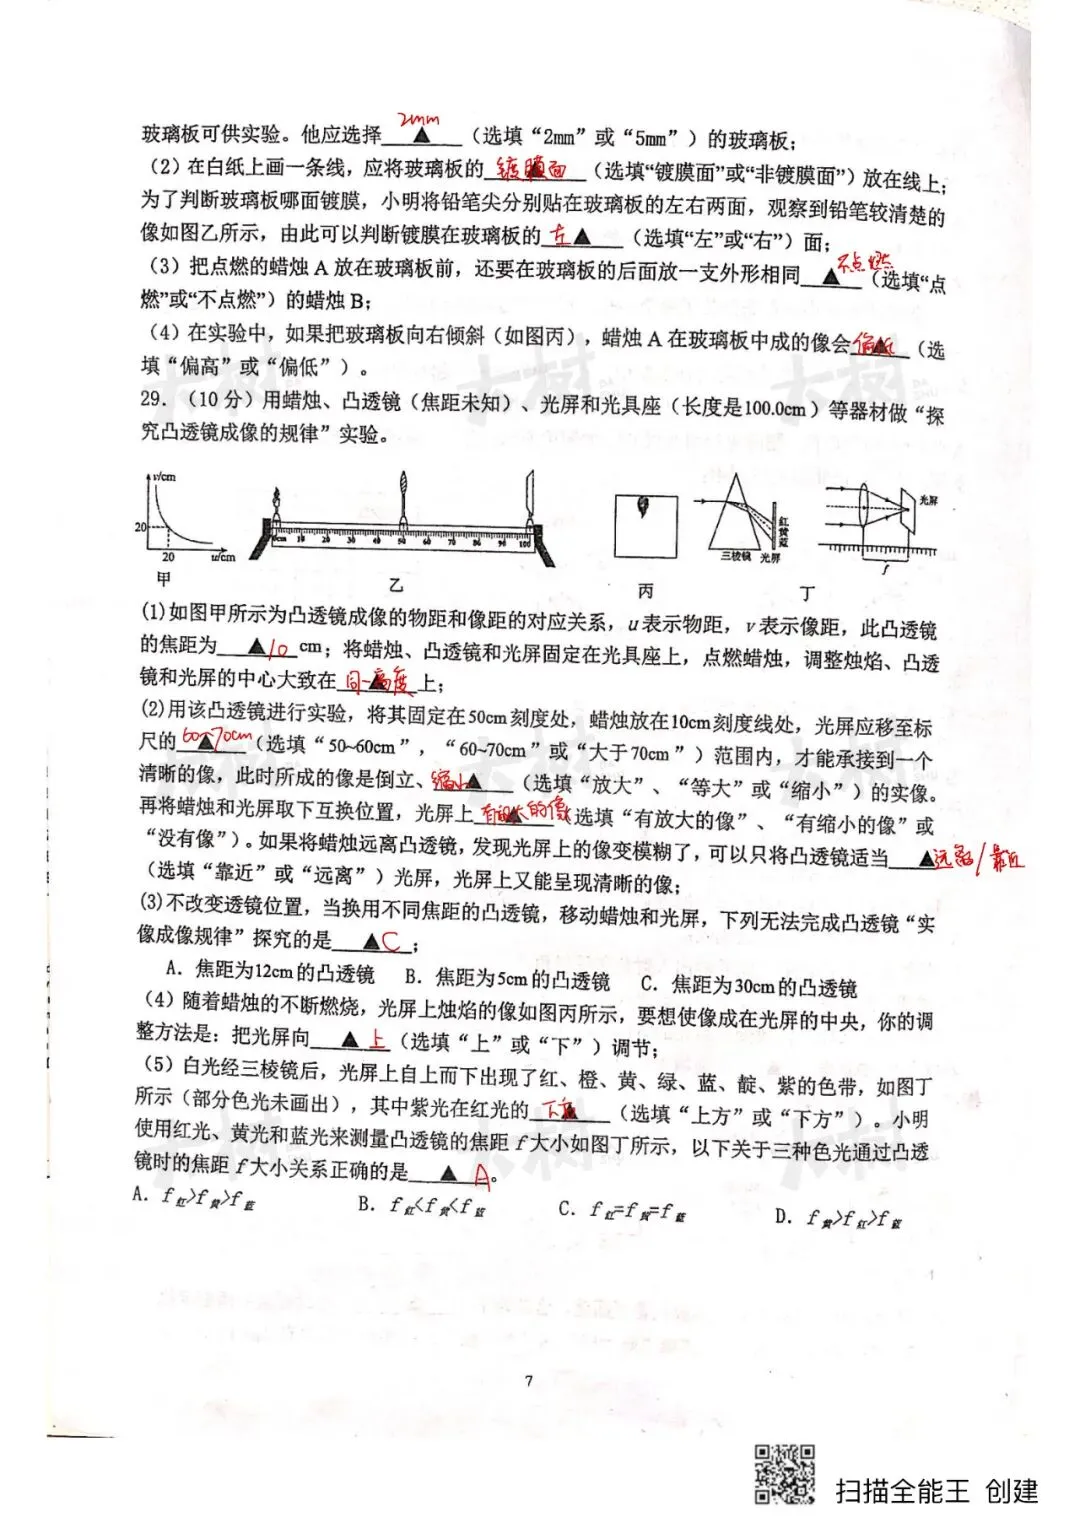 玻璃板可供实验。他应选择 2mm ▲ （选填“2mm”或“5mm”）的玻璃板；
（2）在白纸上画一条线，应将玻璃板的 镀膜面 ▲ （选填“镀膜面”或“非镀膜面”）放在线上；
为了判断玻璃板哪面镀膜，小明将铅笔尖分别贴在玻璃板的左右两面，观察到铅笔较清楚的
像如图乙所示，由此可以判断镀膜在玻璃板的 左 ▲ （选填“左”或“右”）面；
（3）把点燃的蜡烛 A 放在玻璃板前，还要在玻璃板的后面放一支外形相同 ▲ 不点燃 （选填“点
燃”或“不点燃”）的蜡烛 B；
（4）在实验中，如果把玻璃板向右倾斜（如图丙），蜡烛 A 在玻璃板中成的像会 偏低 ▲ （选
填“偏高”或“偏低”）。
29．（10 分）用蜡烛、凸透镜（焦距未知）、光屏和光具座（长度是100.0cm）等器材做“探
究凸透镜成像的规律”实验。
v/cm
20
20
u/cm
甲
0cm 10 20 30 40 50 60 70 80 90 100
乙
丙
三棱镜 光屏
红
黄
蓝
光屏
f
丁
(1)如图甲所示为凸透镜成像的物距和像距的对应关系，u 表示物距，v 表示像距，此凸透镜
的焦距为 ▲ 10 cm；将蜡烛、凸透镜和光屏固定在光具座上，点燃蜡烛，调整烛焰、凸透
镜和光屏的中心大致在 同一高度 ▲ 上；
(2)用该凸透镜进行实验，将其固定在50cm 刻度处，蜡烛放在10cm刻度线处，光屏应移至标
尺的 60~70cm ▲ （选填“50~60cm”，“60~70cm”或“大于70cm”）范围内，才能承接到一个
清晰的像，此时所成的像是倒立、 缩小 ▲ （选填“放大”、“等大”或“缩小”）的实像。
再将蜡烛和光屏取下互换位置，光屏上 有放大的像 ▲ （选填“有放大的像”、“有缩小的像”或
“没有像”）。如果将蜡烛远离凸透镜，发现光屏上的像变模糊了，可以只将凸透镜适当 ▲ 远离/靠近
（选填“靠近”或“远离”）光屏，光屏上又能呈现清晰的像；
(3)不改变透镜位置，当换用不同焦距的凸透镜，移动蜡烛和光屏，下列无法完成凸透镜“实
像成像规律”探究的是 ▲ C ；
A．焦距为12cm 的凸透镜 B．焦距为5cm 的凸透镜 C．焦距为30cm的凸透镜
（4）随着蜡烛的不断燃烧，光屏上烛焰的像如图丙所示，要想使像成在光屏的中央，你的调
整方法是：把光屏向 ▲ 上 （选填“上”或“下”）调节；
（5）白光经三棱镜后，光屏上自上而下出现了红、橙、黄、绿、蓝、靛、紫的色带，如图丁
所示（部分色光未画出），其中紫光在红光的 下方 ▲ （选填“上方”或“下方”）。小明
使用红光、黄光和蓝光来测量凸透镜的焦距 f 大小如图丁所示，以下关于三种色光通过凸透
镜时的焦距 f 大小关系正确的是 ▲ A 。
A．f红>f黄>f蓝 B．f红<f黄<f蓝 C．f红=f黄=f蓝 D．f黄>f红>f蓝
7
扫描全能王 创建